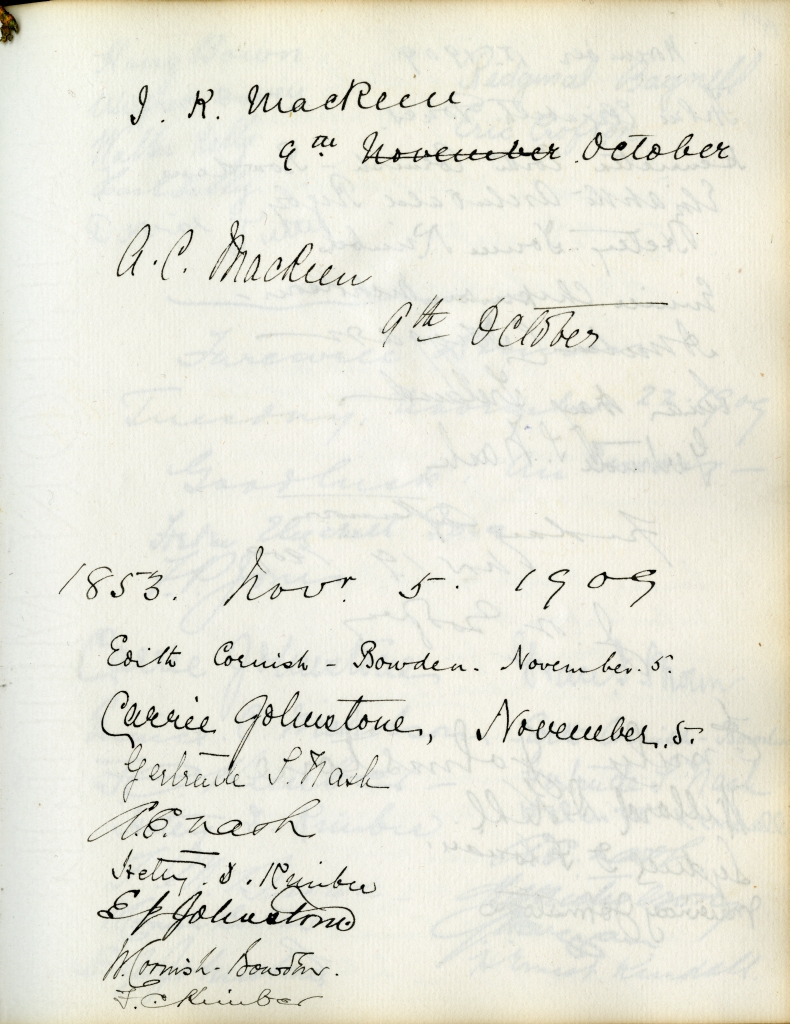 J. K. MacKeen
9th November October
A. C. MacKeen
9th October
1853. Novr. 5. 1909
Edith Cornish - Bowden. November. 5.
Carrie Johnstone, November. 5.
Gertrude S. Nash
A. E. Nash
Hetty. D. Kimber
E P Johnstone
W. Cornish - Bowden.
F. C. Kimber